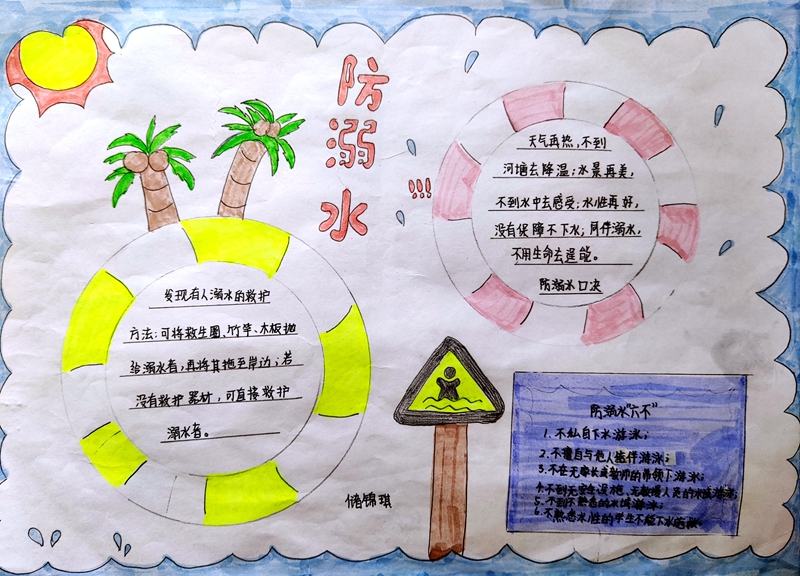 防溺水
!!!
天气再热,不到
河塘去降温;水景再美,
不到水中去感受;水性再好,
没有保障不下水;同伴溺水,
不用生命去逞能。
防溺水口决
发现有人溺水的救护
方法:可将救生圈、竹竿、木板抛
给溺水者,再将其拖至岸边;若
没有救护器材,可直接救护
溺水者。
储锦琪
防溺水“六不”
1. 不私自下水游泳;
2. 不擅自与他人结伴游泳;
3. 不在无家长或教师的带领下游泳;
4. 不到无安全设施、无救援人员的水域游泳;
5. 不到不熟悉的水域游泳;
6. 不熟悉水性的学生不能下水施救。